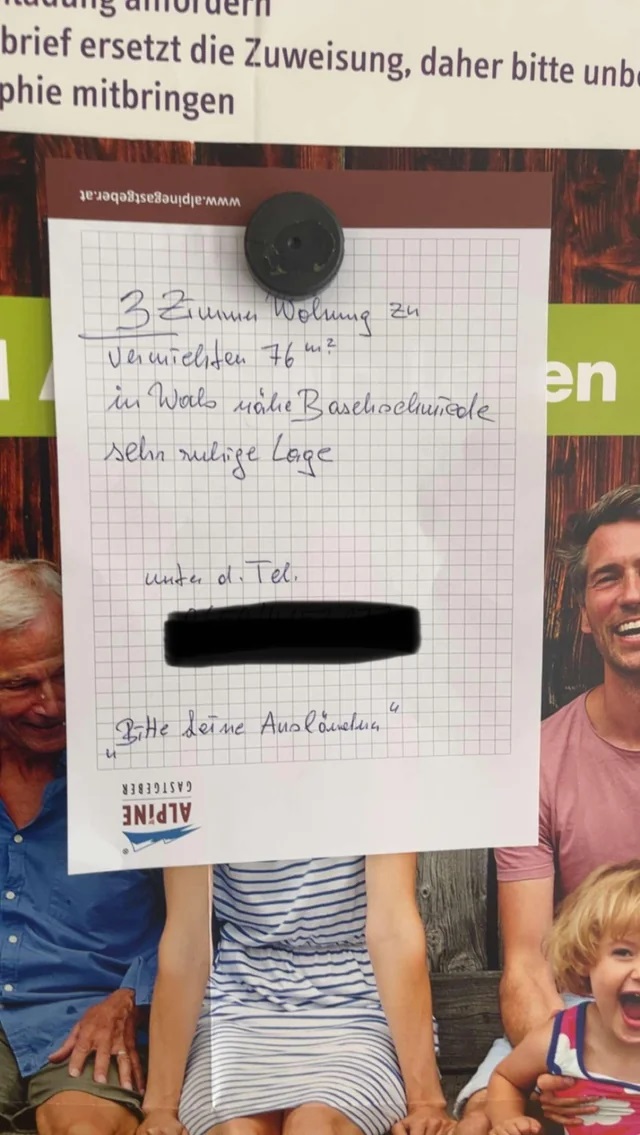 brief ersetzt die Zuweisung, daher bitte unb
phie mitbringen
www.alpinegastgeber.at
3 Zimmer Wohnung zu
vermichten 76 m²
in Wals nähe Baschschmiede
sehr ruhige Lage
en
unter d. Tel.
„Bitte keine Ausländer"
ALPINE
GASTGEBER